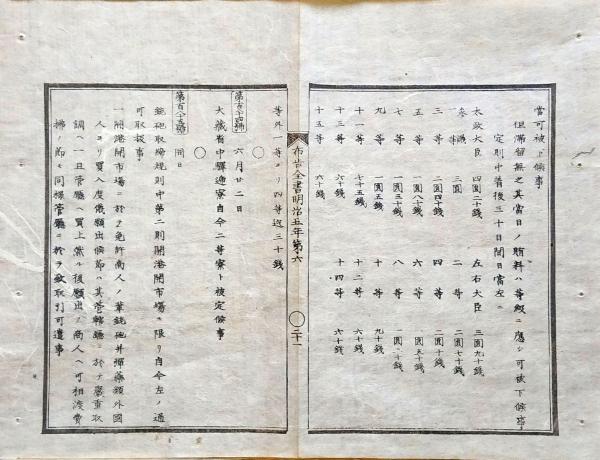 當可被下候事
但滞留無之其當日ノ賄料ハ等級ニ應シ可被下候事
定則中着後三十日間日當左ニ
太政大臣 四圓二十錢 左右大臣 三圓九十錢
參議 一等 三圓 二等 二圓七十錢
三等 二圓四十錢 四等 二圓十錢
五等 一圓八十錢 六等 一圓五十錢
七等 一圓三十錢 八等 一圓二十錢
九等 一圓五錢 十等 九十錢
十一等 七十五錢 十二等 六十錢
十三等 六十錢 十四等 六十錢
十五等 六十錢
布告全書明治五年第六 二十一
等外一等ヨリ四等迄三十錢
○
第百八十四號 六月廿二日
大藏省中驛遞寮自今二等寮ニ被定候事
○
第百八十五號 同日
銃砲取締規則中第二則開港開市場ニ限リ自今左ノ通
可取扱事
一開港開市場ニ於テ免許商人ノ輩銃砲并彈藥類外國
人ヨリ買入度儀願出候節ハ其管轄廳ニ於テ嚴重取
調ヘ一旦管廳ヘ買上然ル後願出ノ商人ヘ可相渡賣
拂ノ節モ同樣管廳ニ於テ致取引可遣事